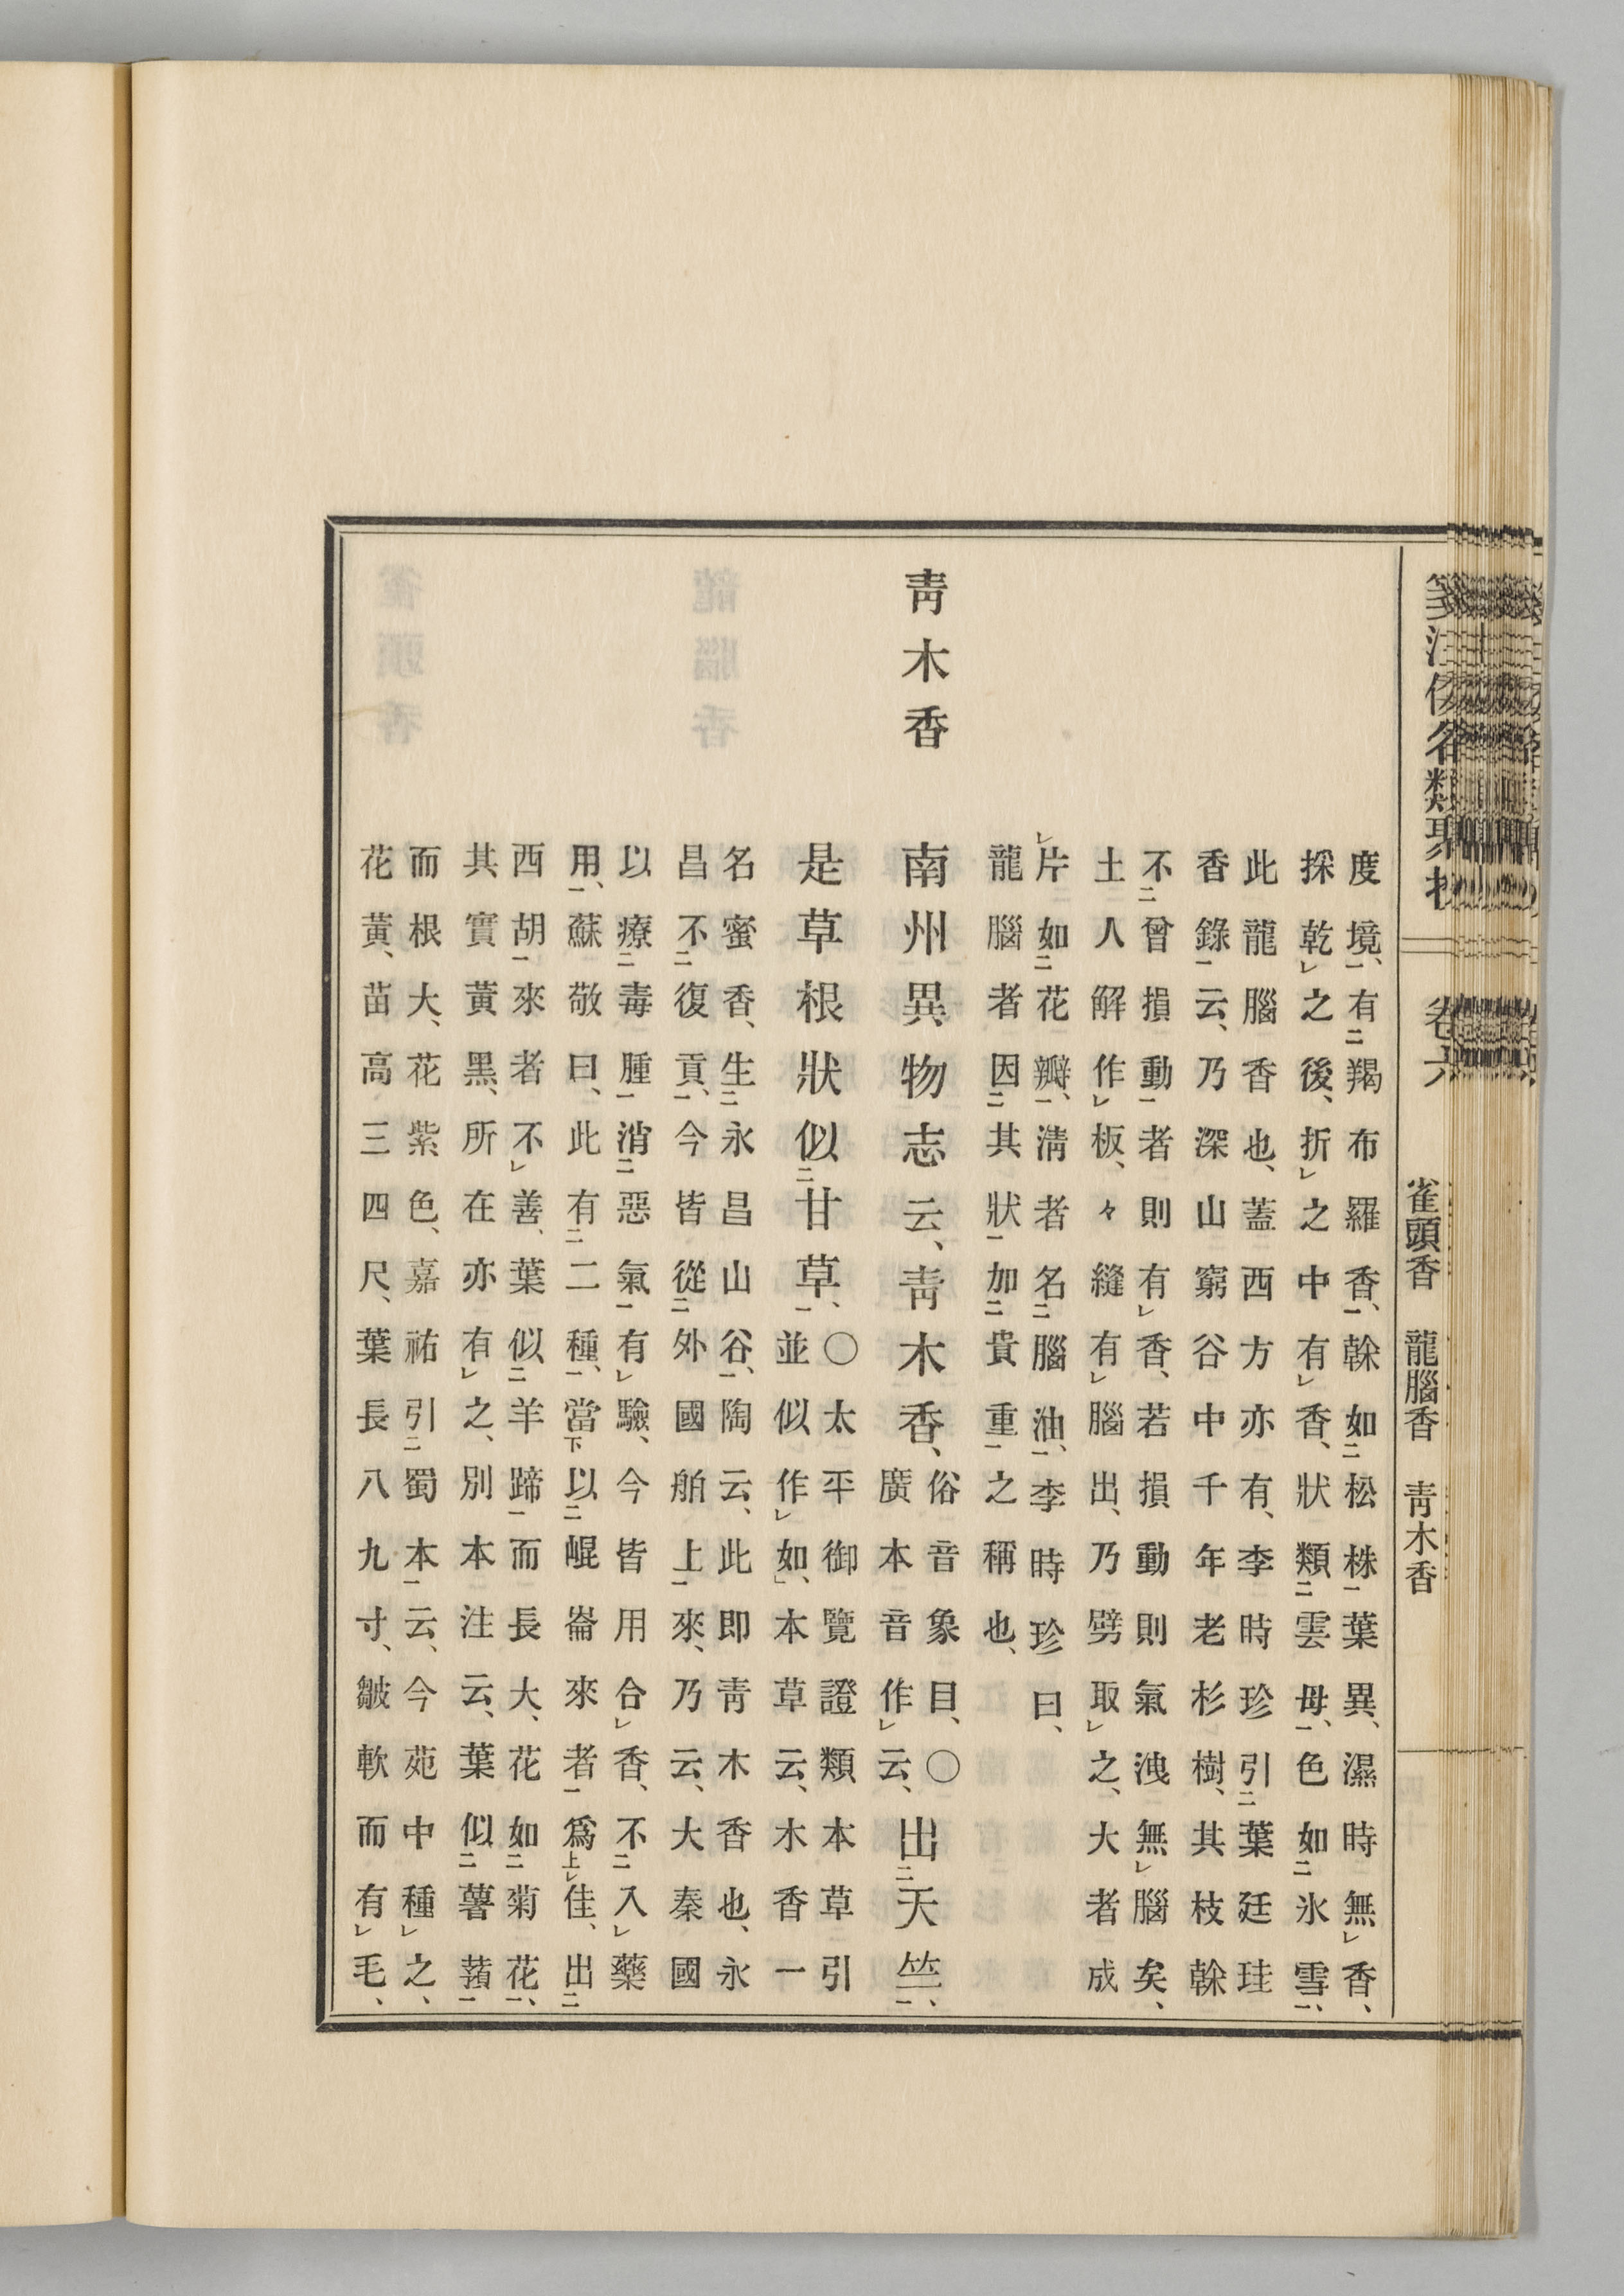 名類聚
雀頭香　龍腦香　靑木香
度境、有羯布羅香、榦如松株葉異、濕時無香、
採乾之後、折之中有香、狀類雲母、色如氷雪、
此龍腦香也、蓋西方亦有、李時珍引葉廷珪
香錄云、乃深山窮谷中千年老杉樹、其枝榦
不曾損動者則有香、若損動則氣洩無腦矣、
土人解作板、々縫有腦出、乃劈取之、大者成
片如花瓣、淸者名腦油、李時珍曰、
龍腦者因其狀加貴重之稱也、
靑木香
南州異物志云、靑木香、
俗音象目、〇
廣本音作云、
出天竺、
是草根狀似甘草、
〇太平御覽證類本草引
並似作如、本草云、木香一
名蜜香、生永昌山谷、陶云、此卽靑木香也、永
昌不復貢、今皆從外國舶上來、乃云、大秦國
以療毒腫消惡氣有驗、今皆用合香、不入藥
用、蘇敬曰、此有二種、當以崐崙來者爲佳、出
西胡來者不善、葉似羊蹄而長大、花如菊花、
其實黃黑、所在亦有之、別本注云、葉似薯蕷
而根大、花紫色、嘉祐引蜀本云、今苑中種之、
花黃、苗高三四尺、葉長八九寸、皺軟而有毛、